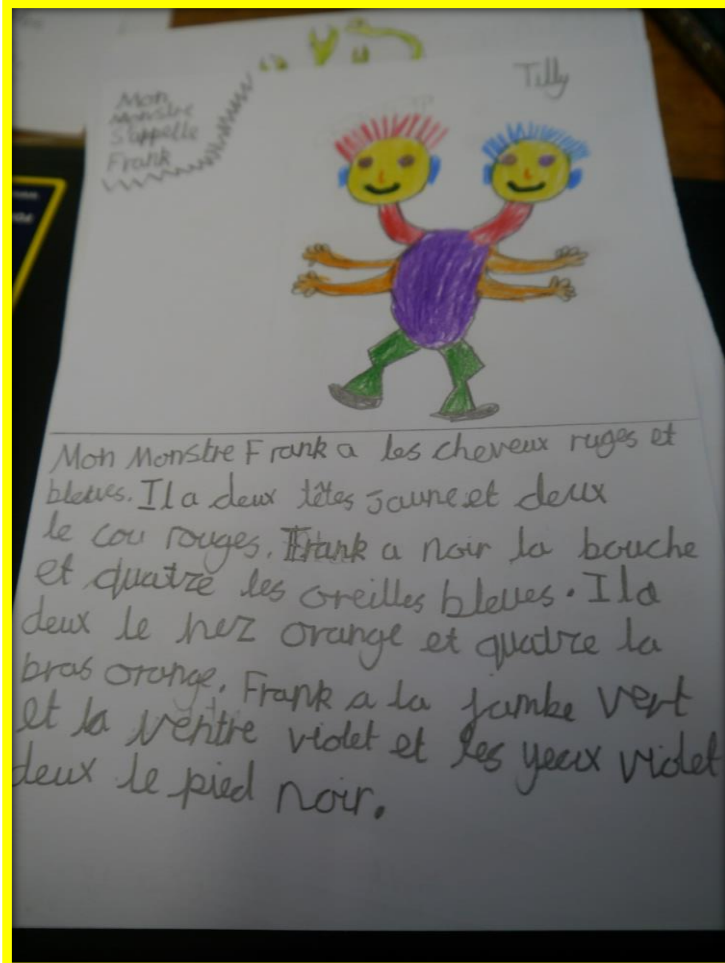 Mon
Monstre
S'appelle
Frank
Tilly
Mon Monstre Frank a les cheveux ruges et
bleues. Il a deux têtes jaune et deux
le cou rouges. Frank a noir la bouche
et quatre les oreilles bleues. Il a
deux le nez orange et quatre la
bras orange. Frank a la jambe vert
et la ventre violet et les yeux violet
deux le pied noir.